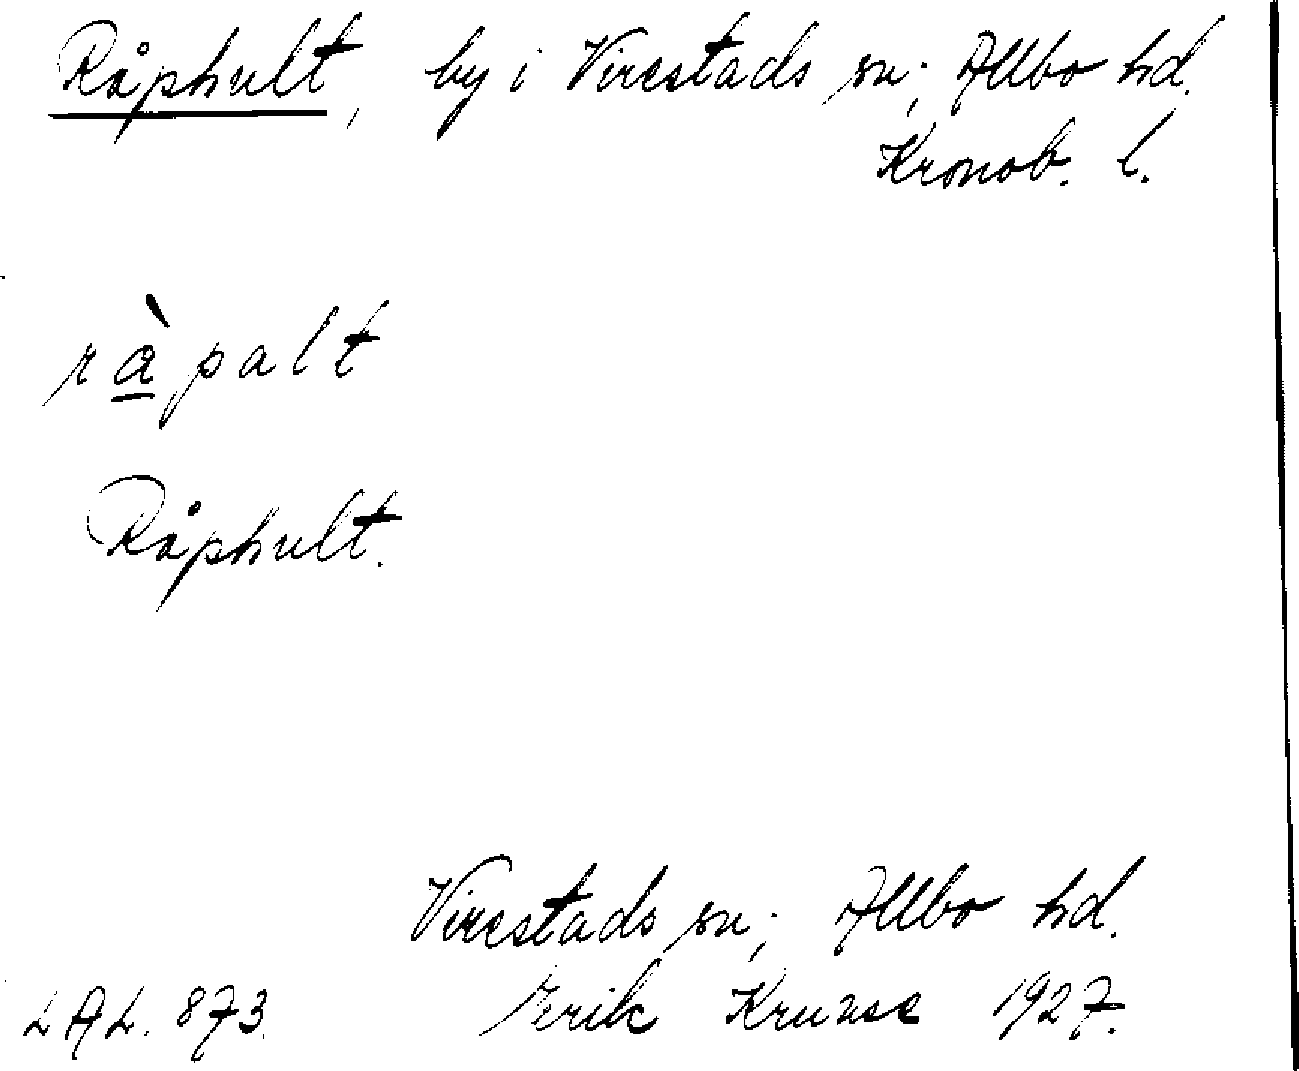 Råphult, by i Virestads sn; Allbo hd.
Kronob. l.
ràpalt
Råphult.
Virestads sn; Allbo hd.
LAL. 873. Erik Kruuse 1927.